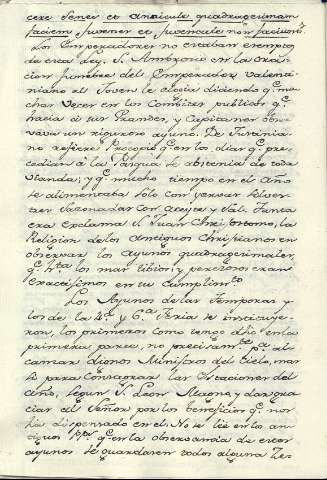 cere Senes et Anicule quadragesimam
faciem, Juvenes et Juvencule non faciunt.
Los Emperadores no estaban exemptos
de esta Ley. S. Ambrosio en la Oracion
cion funebre del Emperador Valenti-
niano el Joven le elogia diciendo q.e mu-
chas veces en los combites publicos q.e
hacia à sus Grandes, y Capitanes obser-
vava un riguroso ayuno. De Justinia-
no refiere Procopio q.e en los dias q.e pre-
cedian à la Pasqua se abstenia de toda
vianda; y q.e mucho tiempo en el Año
se alimentaba solo con yervas silves-
tres sazonadas con Aceyte y Sal. Tanta
era exclama S. Juan Chrisostomo, la
Religion de los antiguos Christianos en
observar los ayunos quadragesimales,
q.e h.ta los mas tibios, y perezosos eran
exactisimos en su cumplim.to
Los Ayunos de las Temporas y
los de la 4.a y 6.a Feria se instituye-
ron, los primeros como tengo dho en la
primera parte, no precisam.te p.a al-
canzar dignos Ministros del Cielo, mas
si para consagrar las Estaciones del
año, segun S. Leon Magno, y dar gra-
cias al Señor por los beneficios q.e nos
ha dispensado en el. No se lee en los an-
tiguos PP. q.e en la observancia de estos
ayunos se guardasen todos alguna Le-